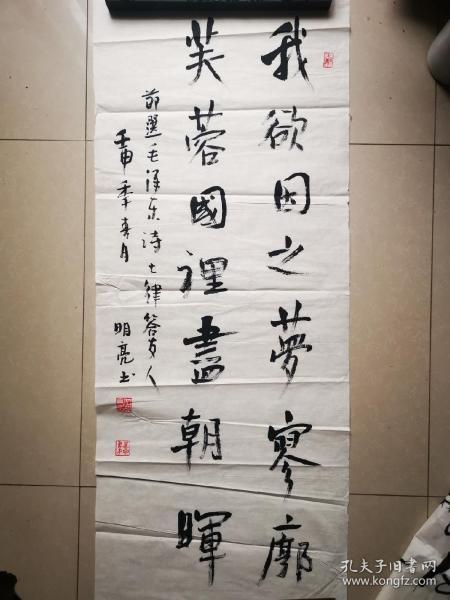 我欲因之夢寥廓
芙蓉國裡盡朝暉
節選毛泽东詩七律答友人
壬申季春月
明亮书
孔夫子旧书网
www.kongfz.com